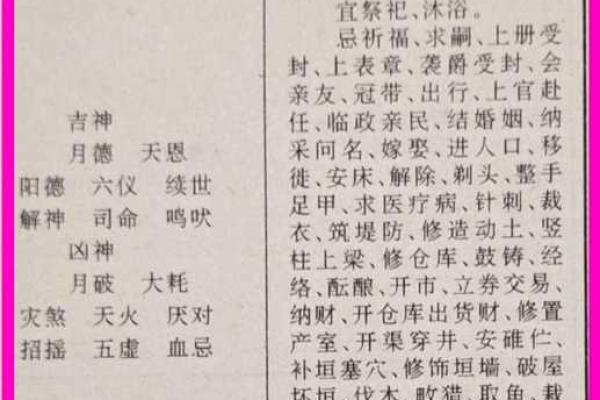 吉神
月德 天恩
阳德 六仪 续世
解神 司命 鸣吠
凶神
月破 大耗
灾煞 天火 厌对
招摇 五虚 血忌
宜祭祀、沐浴。
忌祈福、求嗣、上册受
封、上表章、袭爵受封、会
亲友、冠带、出行、上官赴
任、临政亲民、结婚姻、纳
采问名、嫁娶、进人口、移
徙、安床、解除、剃头、整手
足甲、求医疗病、针刺、裁
衣、筑堤防、修造动土、竖
柱上梁、修仓库、鼓铸、经
络、酝酿、开市、立券交易、
纳财、开仓库出货财、修置
产室、开渠穿井、安碓硙、
补垣塞穴、修饰垣墙、破屋
坏垣、伐木、畋猎、取鱼、栽